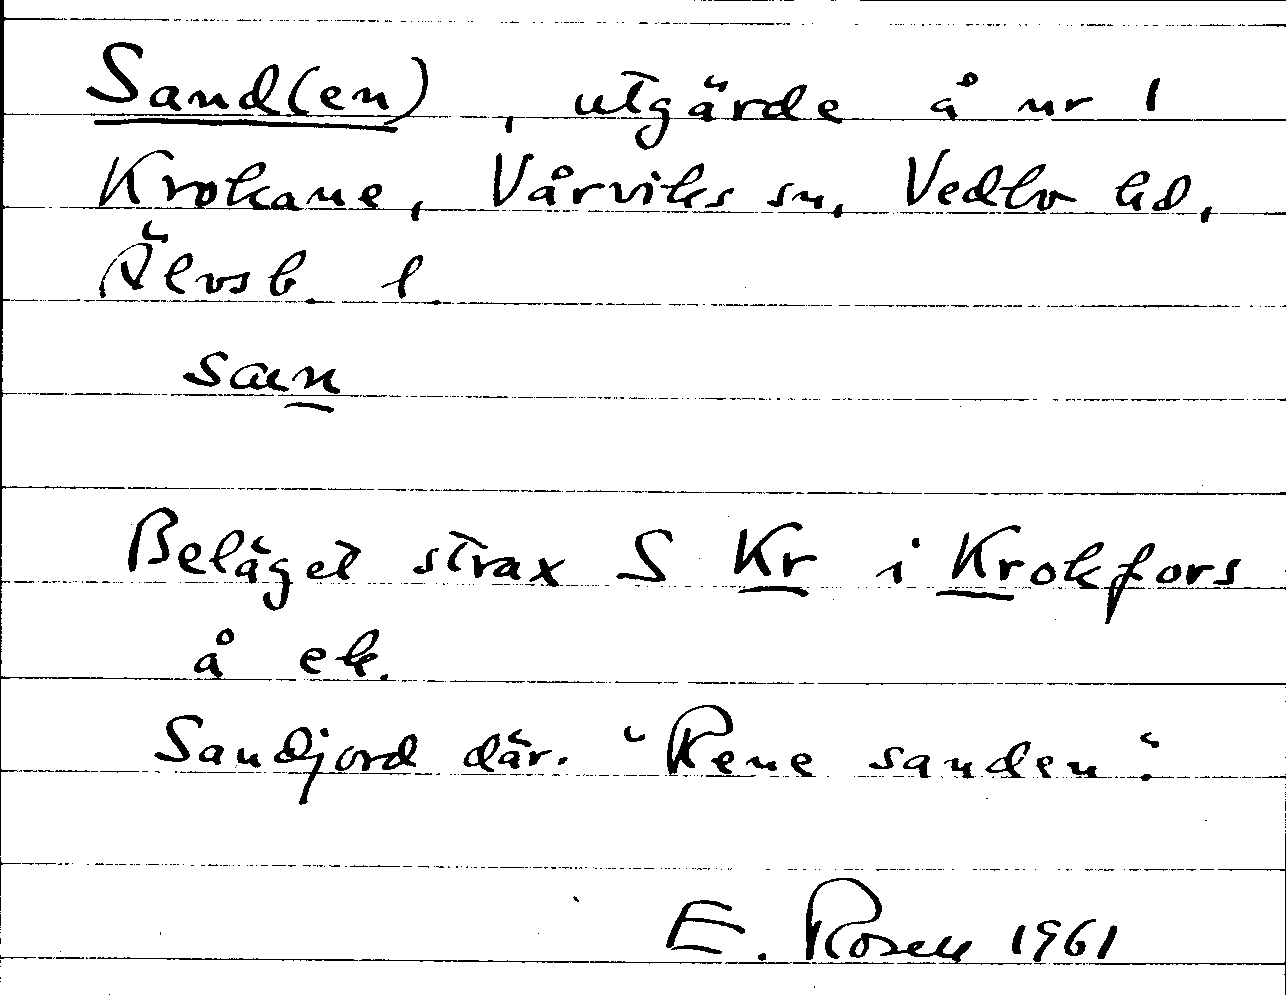 Sand(en), utgärde å nr 1
Krokane, Vårviks sn, Vedbo hd,
Älvsb. l.
san
Beläget strax S Kr i Krokfors
å ek.
Sandjord där. "Rene sanden".
E. Rosell 1961